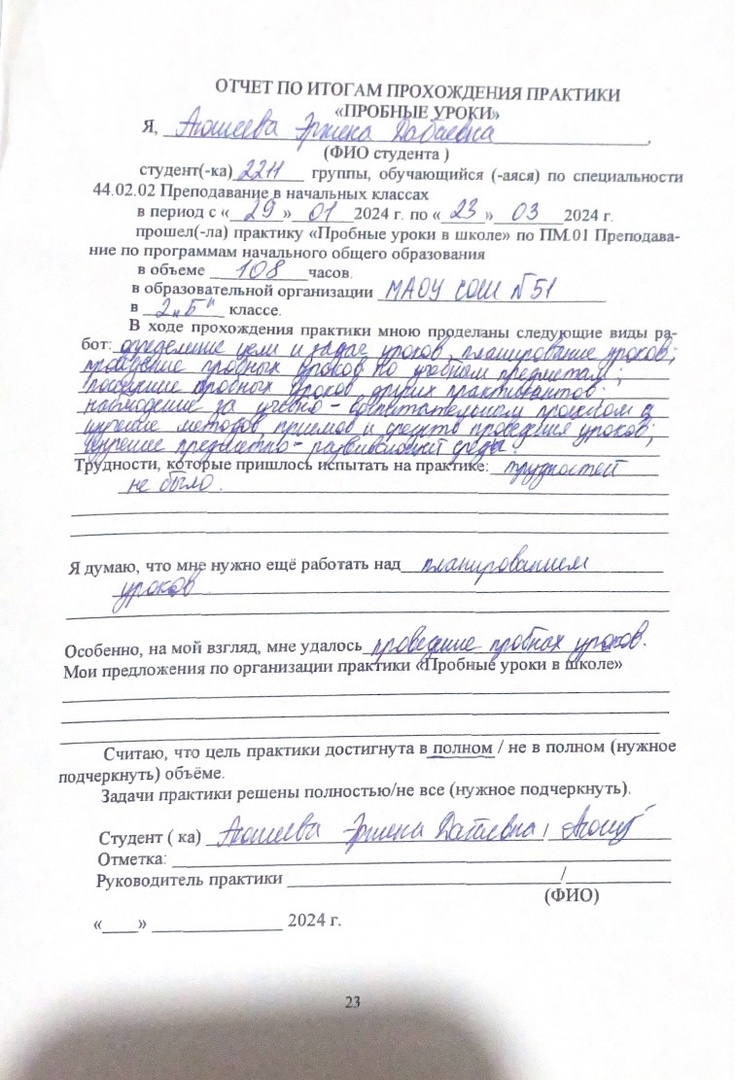 ОТЧЕТ ПО ИТОГАМ ПРОХОЖДЕНИЯ ПРАКТИКИ
«ПРОБНЫЕ УРОКИ»
Я, Аюшеева Эржена Дабаевна,
(ФИО студента )
студент(-ка) 2211 группы, обучающийся (-аяся) по специальности
44.02.02 Преподавание в начальных классах
в период с « 29 » 01 2024 г. по « 23 » 03 2024 г.
прошел(-ла) практику «Пробные уроки в школе» по ПМ.01 Преподава-
ние по программам начального общего образования
в объеме 108 часов.
в образовательной организации МАОУ СОШ №51
в 2 „Б" классе.
В ходе прохождения практики мною проделаны следующие виды ра-
бот: определение цели и задач уроков, планирование уроков;
проведение пробных уроков по учебным предметам;
посещение пробных уроков других практикантов;
наблюдение за учебно-воспитательным процессом в
изучение методов приемов и средств проведения уроков;
изучение предметно-развивающей среды.
Трудности, которые пришлось испытать на практике: трудностей
не было.
Я думаю, что мне нужно ещё работать над планированием
уроков
Особенно, на мой взгляд, мне удалось проведение пробных уроков.
Мои предложения по организации практики «Пробные уроки в школе»
Считаю, что цель практики достигнута в полном / не в полном (нужное
подчеркнуть) объёме.
Задачи практики решены полностью/не все (нужное подчеркнуть).
Студент ( ка) Аюшеева Эржена Дабаевна /
Отметка:
Руководитель практики /
(ФИО)
«    » 2024 г.
23